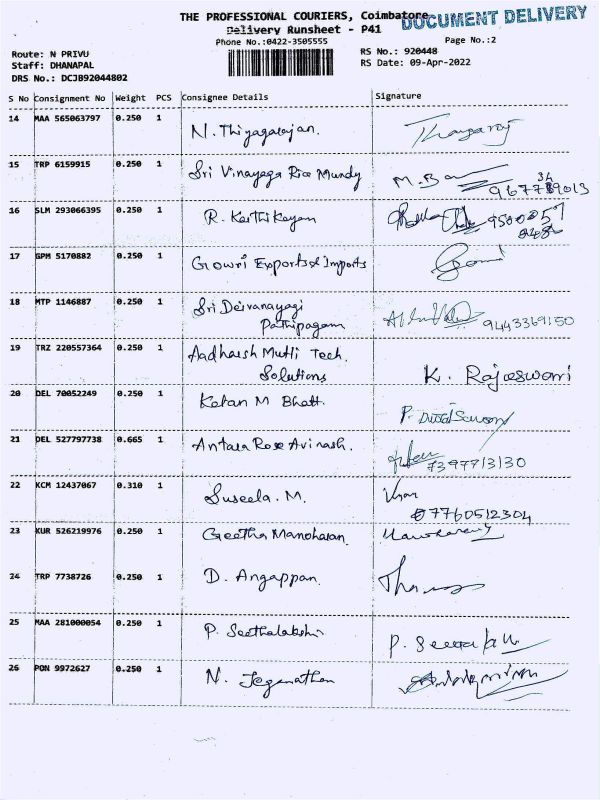 THE PROFESSIONAL COURIERS, Coimbatore
DOCUMENT DELIVERY
Delivery Runsheet - P41
Phone No.:0422-3505555
Page No.:2
Route: N PRIVU
RS No.: 920448
Staff: DHANAPAL
RS Date: 09-Apr-2022
DRS No.: DCJB92044802
S No Consignment No Weight PCS Consignee Details Signature
14 MAA 565063797 0.250 1 N. Thiyagarajan.
15 TRP 6159915 0.250 1 Sri Vinayaga Rice Mundy
16 SLM 293066395 0.250 1 R. Karthikayan
17 GPM 5170882 0.250 1 Gowri Exports & Imports Gowri
18 MTP 1146887 0.250 1 Sri Deivanayagi
Pathipagam 9443369150
19 TRZ 220557364 0.250 1 Aadharsh Mutli Tech.
Solutions K. Rajeswari
20 DEL 70052249 0.250 1 Ketan M Bhatt.
21 DEL 527797738 0.665 1 Antara Rose Avinash.
7397713130
22 KCM 12437067 0.310 1 Suseela. M.
07760512304
23 KUR 526219976 0.250 1 Geetha Manoharan.
24 TRP 7738726 0.250 1 D. Angappan.
25 MAA 281000054 0.250 1 P. Seethalakshi
26 PON 9972627 0.250 1 N. Jeganathan